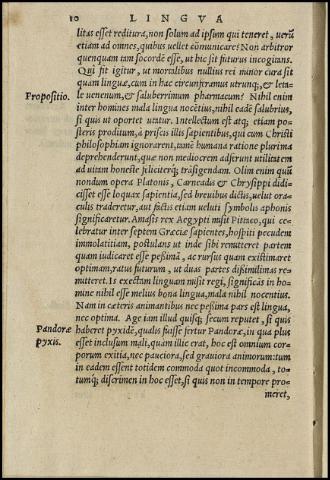 10 LINGVA
litas esset reditura, non solum ad ipsum qui teneret, uerũ
etiam ad omnes, quibus uellet cõmunicare? Non arbitror
quenquam tam socordẽ esse, ut hic sit futurus incogitans.
Qui fit igitur, ut mortalibus nullius rei minor cura sit
quàm linguæ, cum in hac circunferamus utrunq;, & leta=
le uenenum, & saluberrimum pharmacum? Nihil enim
Propositio.
inter homines mala lingua nocẽtius, nihil eadẽ salubrius,
si quis ut oportet utatur. Intellectum est atq; etiam po=
steris proditum, à priscis illis sapientibus, qui cum Christi
philosophiam ignorarent, tamẽ humana ratione plurima
deprehenderunt, quæ non mediocrem adferunt utilitatem
ad uitam honeste feliciterq; trãsigendam. Olim enim quũ
nondum opera Platonis, Carneadis & Chrysippi didi=
cisset esse loquax sapientia, sed breuibus dictis, uelut ora=
culis traderetur, aut factis etiam ueluti symbolis aphonis
significaretur. Amasis rex Aegypti misit Pittaco, qui ce=
lebratur inter septem Græciæ sapientes, hospiti pecudem
immolatitiam, postulans ut inde sibi remitteret partem
quam iudicaret esse peßimã, ac rursus quam existimaret
optimam, ratus futurum, ut duas partes dißimillimas re=
mitteret. Is exectam linguam misit regi, significãs in ho=
mine nihil esse melius bona lingua, mala nihil nocentius.
Nam in cæteris animantibus nec peßima pars est lingua,
nec optima. Age iam illud quisq; secum reputet, si quis
Pandoræ
haberet pyxidẽ, qualis fuisse fertur Pandoræ, in qua plus
pyxis.
esset inclusum mali, quàm illic erat, hoc est omnium cor=
porum exitia, nec pauciora, sed grauiora animorum: tum
in eadem essent totidem commoda quot incommoda, to=
tumq; discrimen in hoc esset, si quis non in tempore pro=
meret,